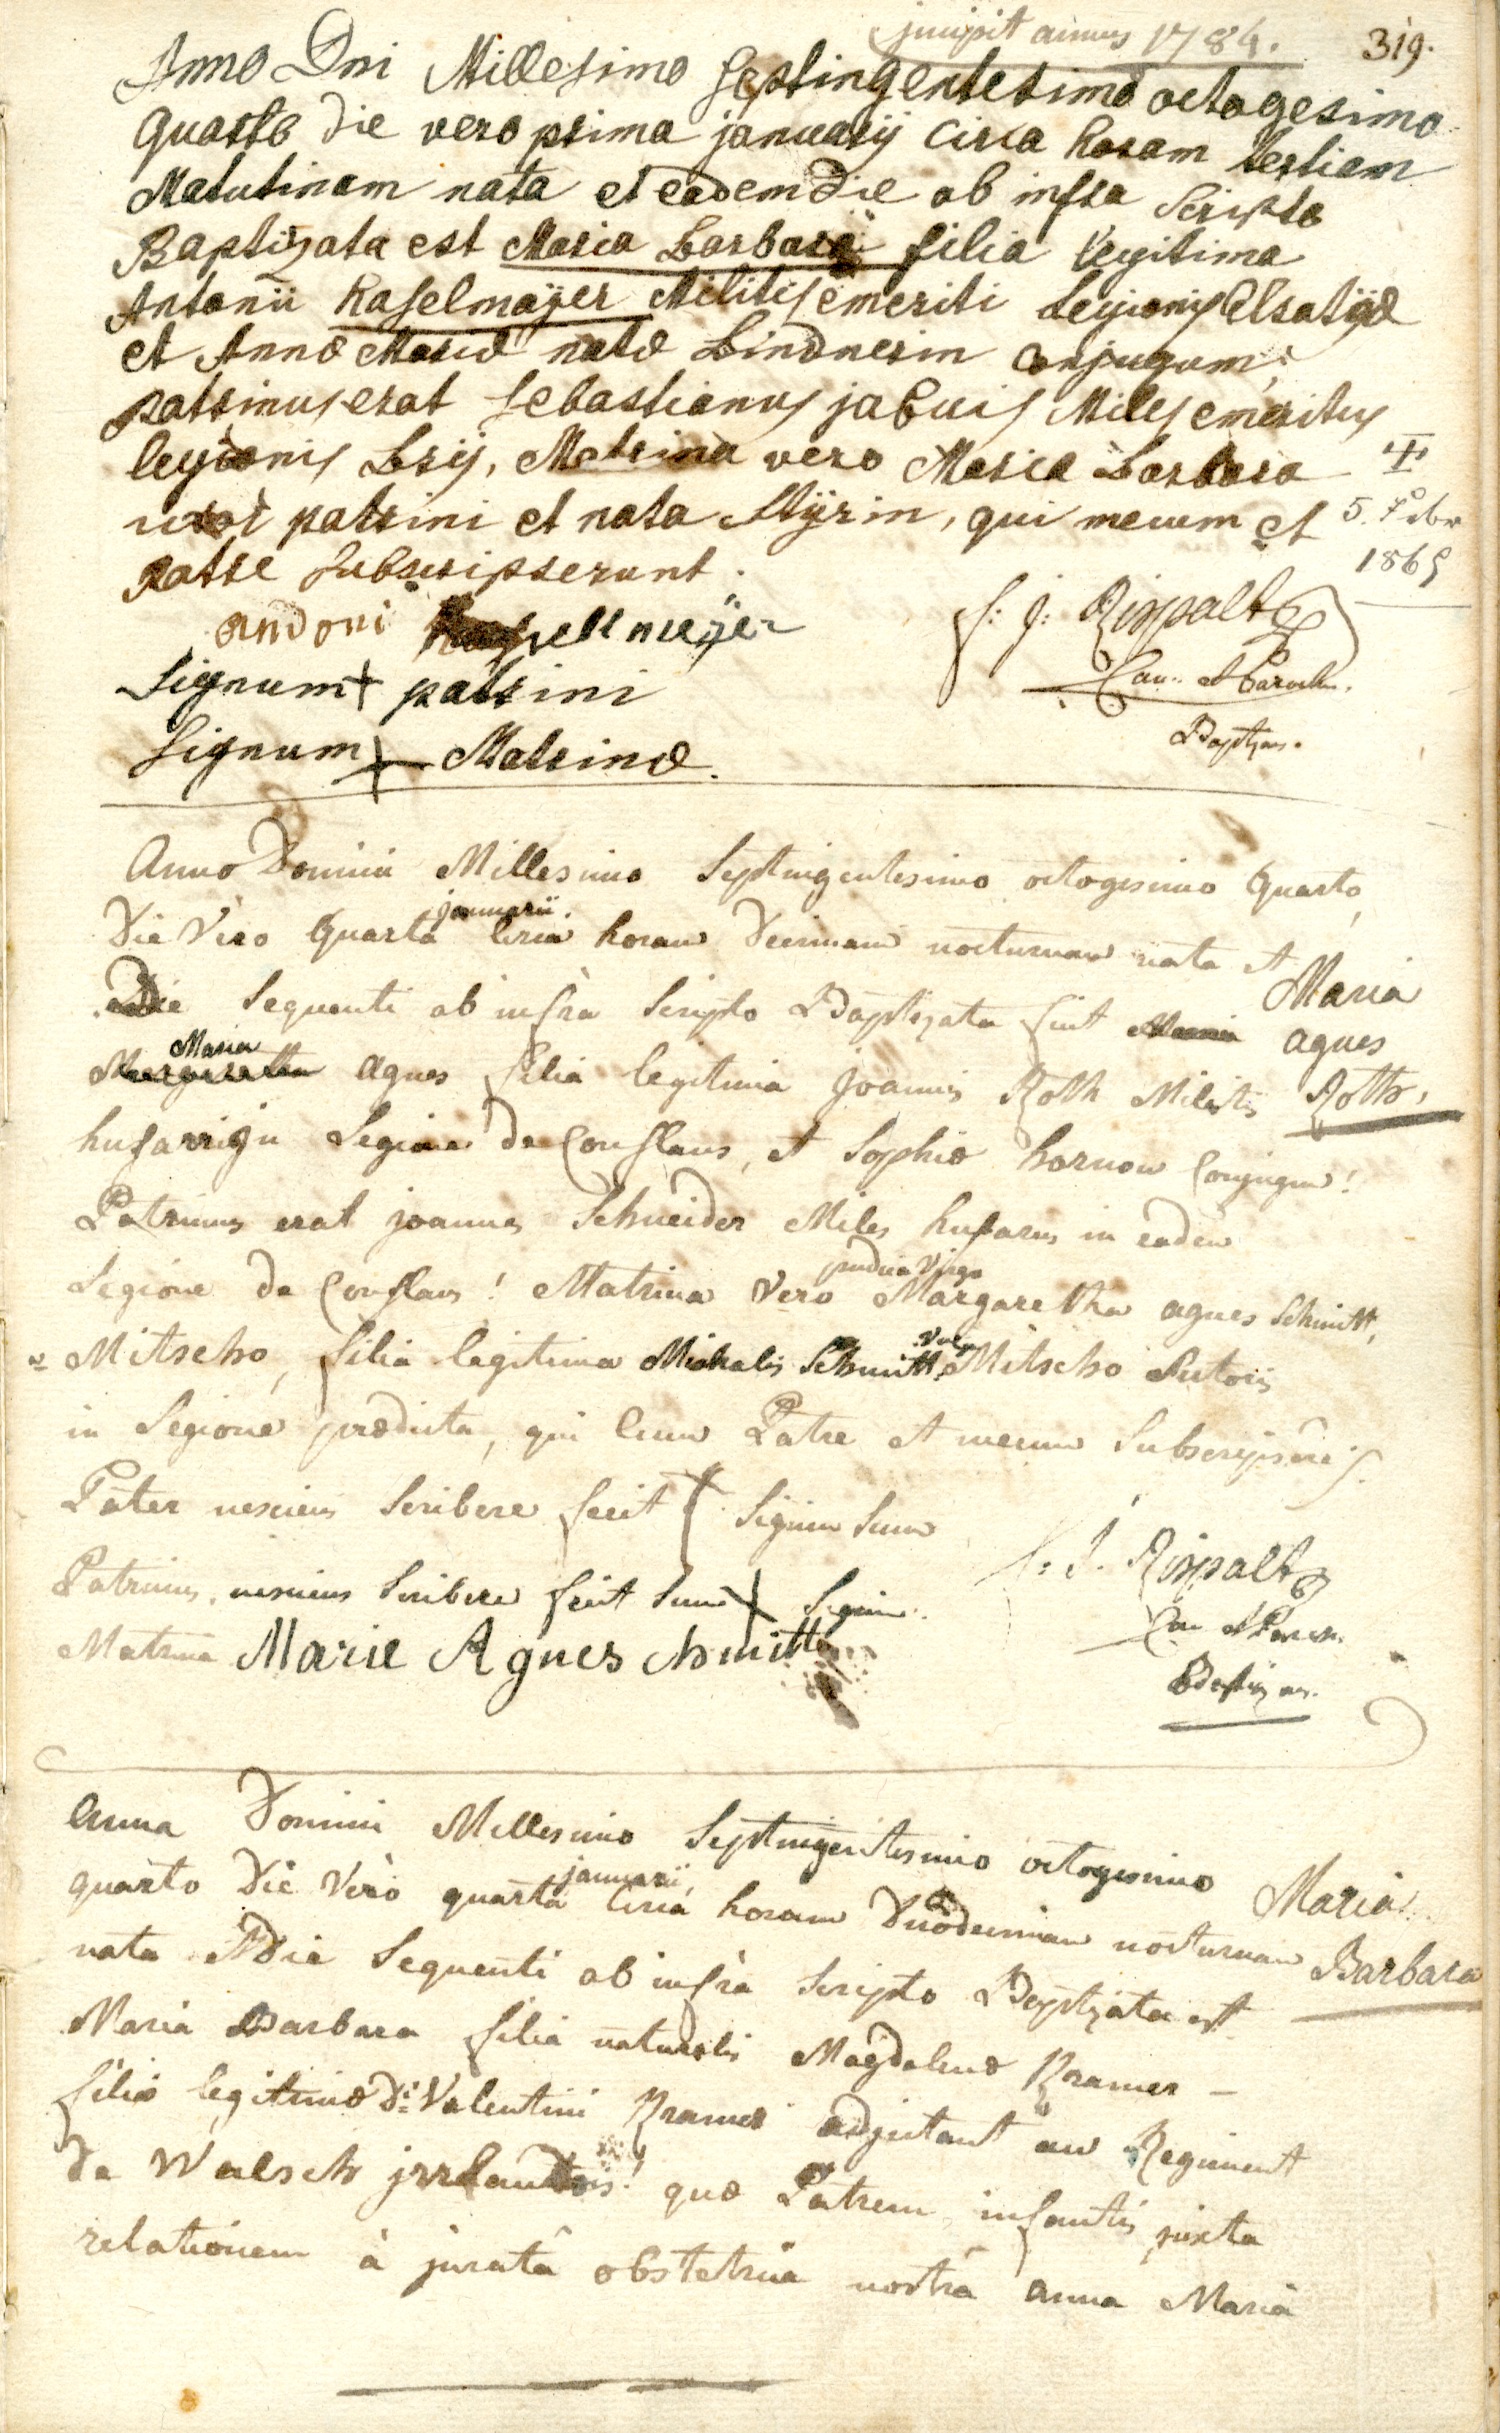 incipit annus 1784. 319.
Anno Dni Millesimo Septingentesimo octogesimo
quarto die vero prima januarij circa horam tertiam
Matutinam nata et eadem die ab infra scripto
Baptizata est Maria Barbara filia legitima
Antonii Haselmaÿer Militis emeriti legionis Alsatiæ
et Annæ Mariæ natæ Lindnerin conjugum;
patrinus erat Sebastianus jabuis Miles emeritus
legionis , Matrina vero Maria Barbara
uxor patrini et nata Stÿrin, qui mecum et
patre subscripserunt.
5. 7bre
1865
andoni Hasellmeÿer
Signum + patrini
Signum + Matrinæ.
F: J: Rispalt
Can: et Parochus.
Baptizans.
Anno Domini Millesimo Septingentesimo octogesimo quarto,
Die Vero quarta januarii circa horam Decimam nocturnam nata et
Die sequenti ab infrà scripto Baptizata fuit Maria
Margaretha Maria Agnes filia legitima Joannis Roth Militis
Maria
agnes
Roth,
husarrigu Legione de Conflans, et Sophiæ hornow Conjugum!
Patrinus erat joannes Schneider Miles husarus in eadem
Legione de Conflans! Matrina Vero pudica Virgo Margaretha agnes Schmitt,
Mitscho, filia legitima Michalis Schmitt, Vulgo Mitscho Sutoris
in Legione prædicta, qui cum Patre et mecum subscripsêre.
Pater nesciens scribere fecit + Signum suum
Patrinus nesciens scribere fecit suum + Signum.
Matrina Marie Agnes chmitt
F: J. Rispalt
Can et Paroch.
Baptizans.
Anno Domini Millesimo Septingentesimo octogesimo
quarto Die Vèrò quarta januarii, circa horam Duodecimam nocturnam
nata et die sequenti ab infrà scripto Baptizata est
Maria
Barbara
Maria Barbara filia naturalis Magdalenæ Kramer –
filiæ legitimæ Di Valentini Kramer adjutant au Regiment
de Walsch jrrlandois! quæ Patrem infantis juxta
relationem à juratâ obstetrice nostrâ Anna Mariâ